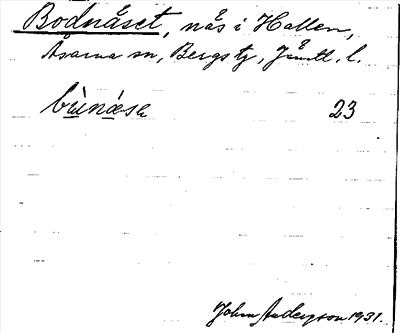 Bodnäset, näs i Hallen,
Åsarna sn, Bergs tg, Jämtl. l.
bùnæsə 23
John Anderzon 1931.